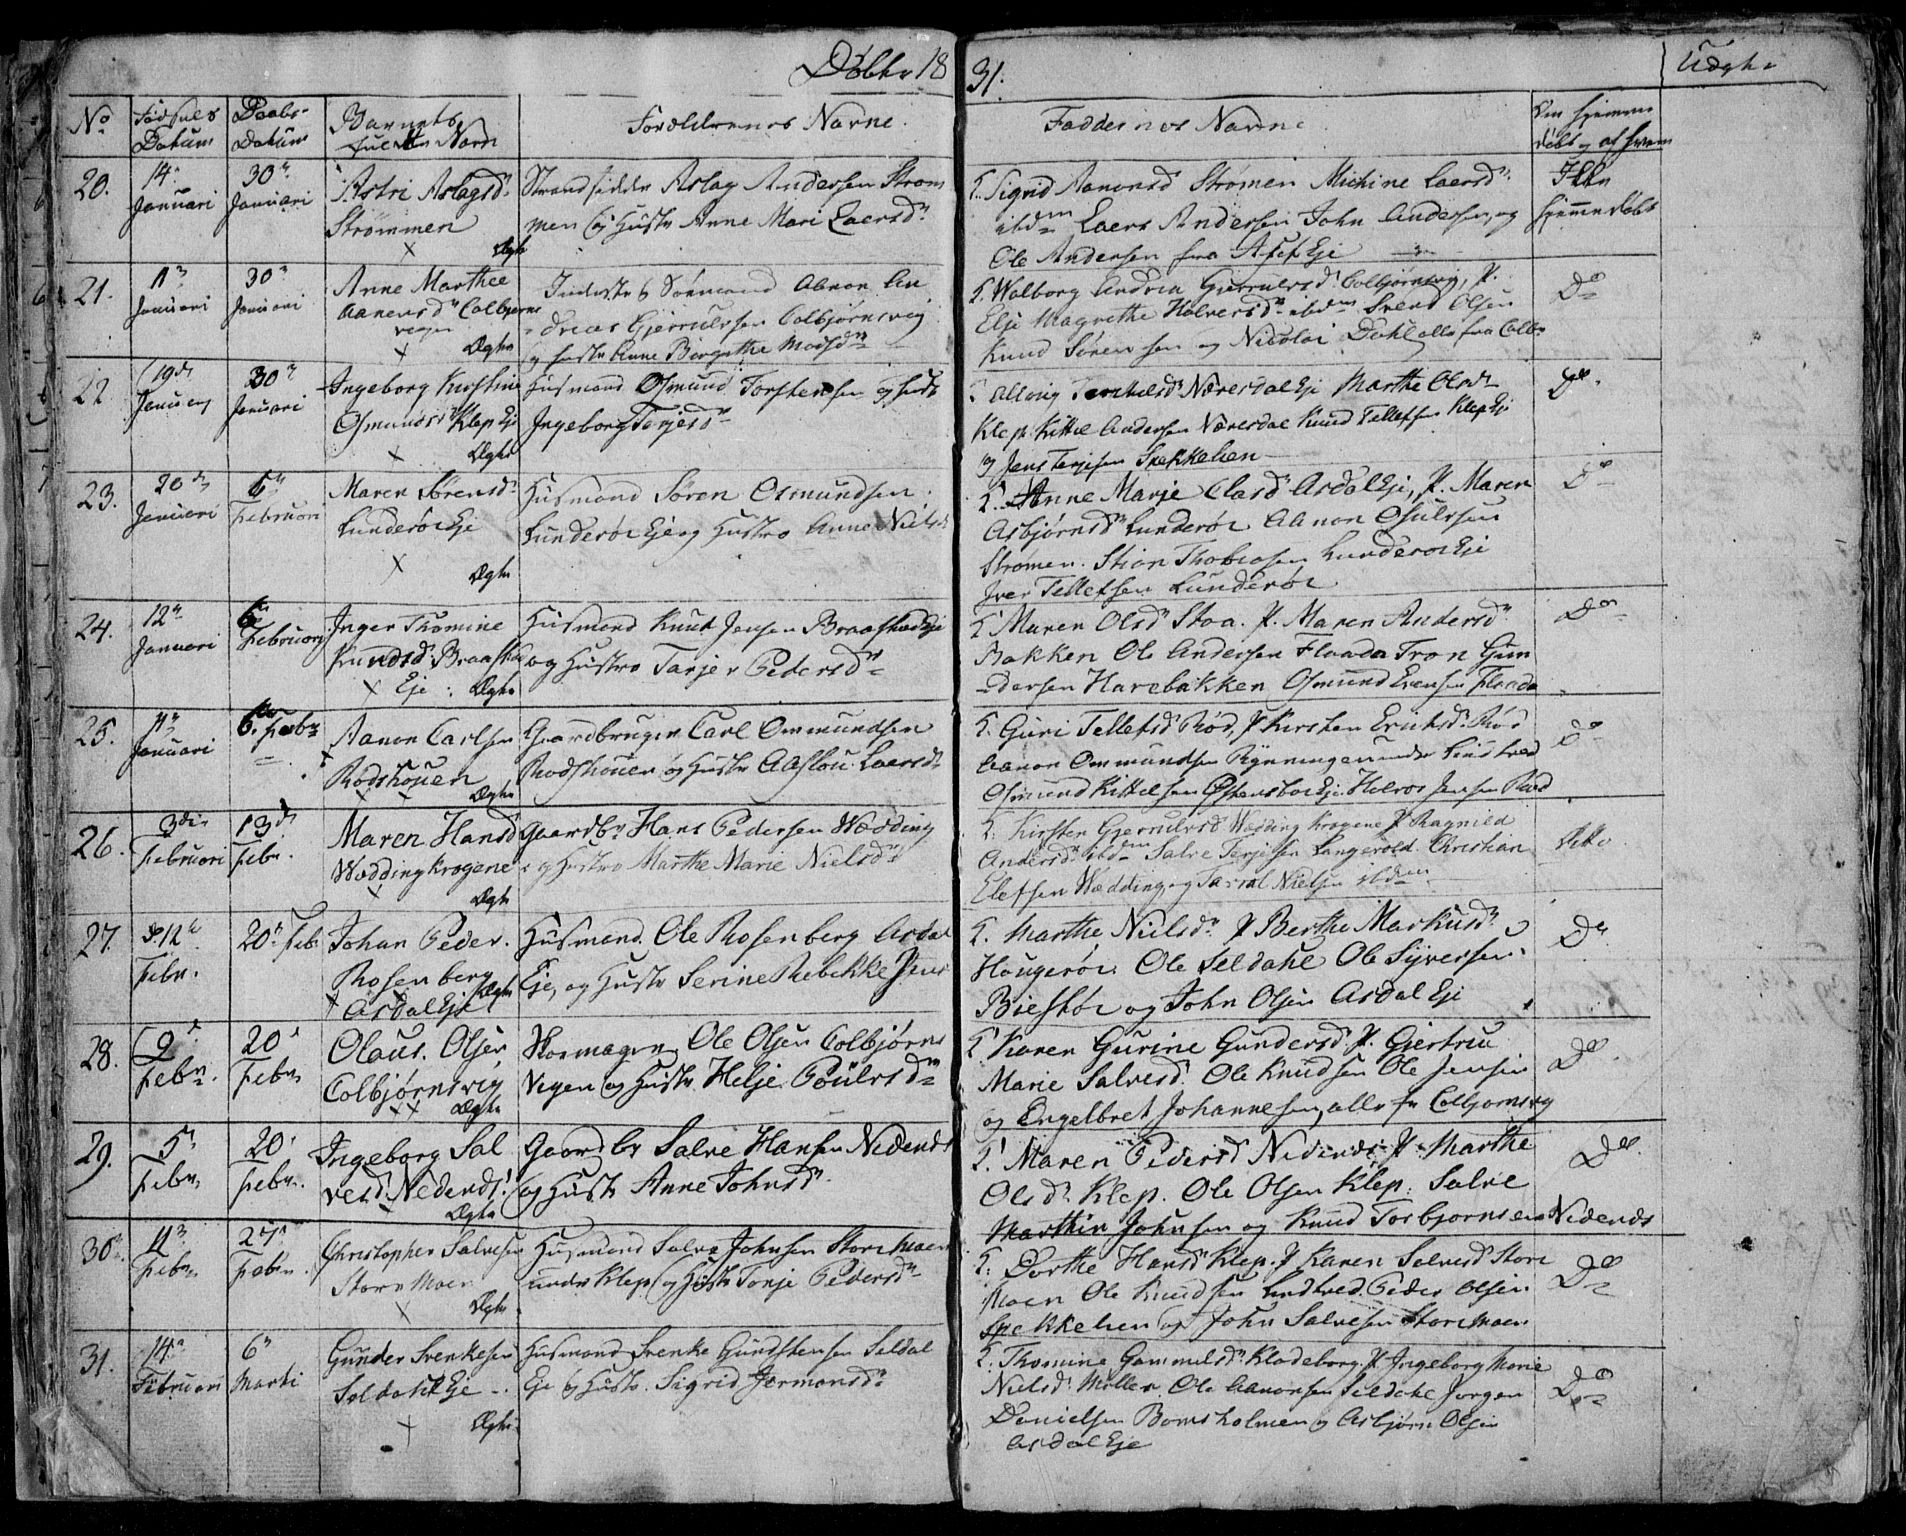 Döbte 18 31. Uægte
No Fødsels Datum Daabs- Datum Barnets fulde Navn Forældrenes Navne. Faddernes Navne Om hjemme døbt og af hvem
20. 14. Januari 30n Januari Astri Aslagsd. Strømmen Ægte
Strandsidder Aslag Andersen Strøm
men og Hustr Anne Mari Laersd.
Sigrid Aanonsd Strømen Michine Laersd.
ibdm Laers Andersen John Andersen, og
Ole Andersen fra Eje
Ikke hjemmedøbt
21. 11n Januari 30n Januari Anne Marthee Aanensd. Colbjørnsvegen Ægte
Aanon An
dreas Gjerrulfsen Colbjørnsvig
og hustr Anne Birgethe Madsdn
Walborg Andrea Gierrulvsd. Colbjørnsvig, P.
Elje Magrethe Halversd. ibdm Svend Olsen
Knud Sørensen og Nicolai Dahl alle fra Colb
Do
22 19de Januarj 30n Januari Ingeborg Kirstine Osmundsd. Klep Eje Ægte
Husmand Osmund Torstensen og hust
Ingeborg Terjesdn
Næresdal Eje Marthe Olsdr
Klep. Kittel Andersen Næresdal Knud Tellefsen Klep Eje
og Jens Terjesen Spekkelien
Do.
23. 20de Januari 6n Februari Maren Sørensd. Lunderöe Eje Ægte
Husmand Sören Osmundsen
Lunderöe Eje og Hustro Anne Nielsd.
Anne Marje Clasd Asdal Eje, P. Maren
Asbjörnsd. Lunderöe Aanon Osulfsen
Strømen. Stian Thobiasen Lunderoe Eje
Iver Tellefsen Lunderöe
Do
24. 12n Januari 6n Februarj Inger Thomine Knudsd. Braastad Eje Ægte
Husmand Knud Jensen Braastad Eje
og Hustro Tarjer Pedersdn
Maren Olsd. Stoa. P. Maren Andersd.
Bakken Ole Andersen Flaada Tron Gun
dersen Harebakken Osmund Evensen Flaada
Do
25. 11n Januari 6. Febr Aanon Carlsen Rodshouen Ægte
Gaardbruger Carl Ommundsen
Rodshouen og Hustr Aaslou Laersd.
Guri Tellefsd Röd, P Kirsten Eriksd. Röd
Aanon Ommundsen Rynningen under Lindtved
Osmund Kittelsen Østensboe Eje Halvor Jensen Röd
Do
26. 3die Februari 13de Febr. Maren Hansd Wædding krogene Ægte
Gaardbr Hans Pedersen Wædding
og hustro Marthe Marie Nielsd.
Kirsten Gjerrulvsd Wædding krogene P Ragnild
Andersd. ibdm Salve Terjesen Langevold. Christian
Elefsen Wædding, og Nielsen ibdm
Do
27. 12te Febr. 20n Febr Johan Peder. Rosenberg Asdal Eje Ægte
Husmand Ole Rosenberg Asdal
Eje, og Hustr Serine Rebekke
Marthe Nielsd. P Berthe Markusd.
Hougeröe. Ole Seldahl Ole Syversen
Bieskör og John Olsen Asdal Eje
Do
28. 9d Febr. 20d Febr Olaus. Olsen Colbjørnsvig Ægte
Ole Olsen Colbjørns
Vegen og hustr. Helje Poulvsdn
Karen Gurine Gundersd. P. Gjertru
Marie Salvesd. Ole Knudsen Ole Jensen
og Engelbret Johannesen, alle fr Colbjornsvig
Do
29. 5n Febr. 20n Febr. Ingeborg Sal vesd. Nedenes. Ægte
Gaardbr Salve Hansen Nedenes
og Hustr Anne Johnsd.
Maren Pedersd Nedenes P. Marthe
Olsd. Klep. Ole Olsen Klep. Salve
Marthin Johnsen og Knud Torbjornsen Nedenes
Do.
30. 11n Febr 27n Febr. Christopher Salvesen Store Moen Ægte
Husmand Salve Johnsen Store Moen
under Klep og Hustr Tonje Pedersd.
Dorthe Hansd Klep. P Karen Salvesd Store
Moen Ole Knudsen Lindtved. Peder Olsen
Spekkelien og John Salvesen Store Moen
Do
31. 14n Februari 6n Marti Gunder Svenkesen Seldahl Eje Ægte
Husmand Svenke Gundstensen Seldal
Eje og Hustr. Sigrid Jermansdn
Thomine Gammelsd. Kladeborg. P Ingeborg Marie
Nielsd. Möller. Ole Aanonsen Seldahl Jorgen
Danielsen Bomsholmen og Asbjørn Olsen
Asdal Eje
Do